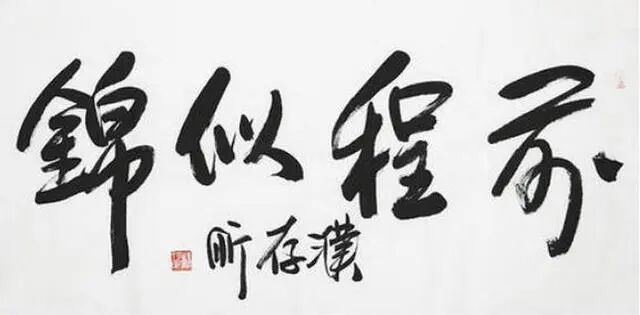 前程似錦
濮存昕